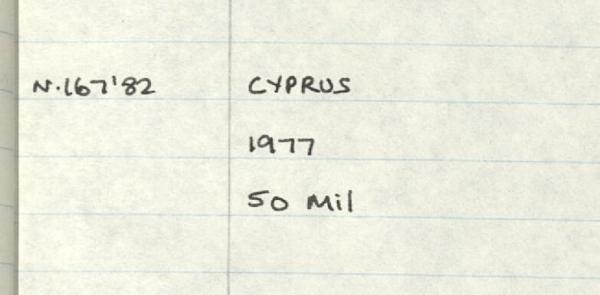 N.167'82 CYPRUS
1977
50 Mil